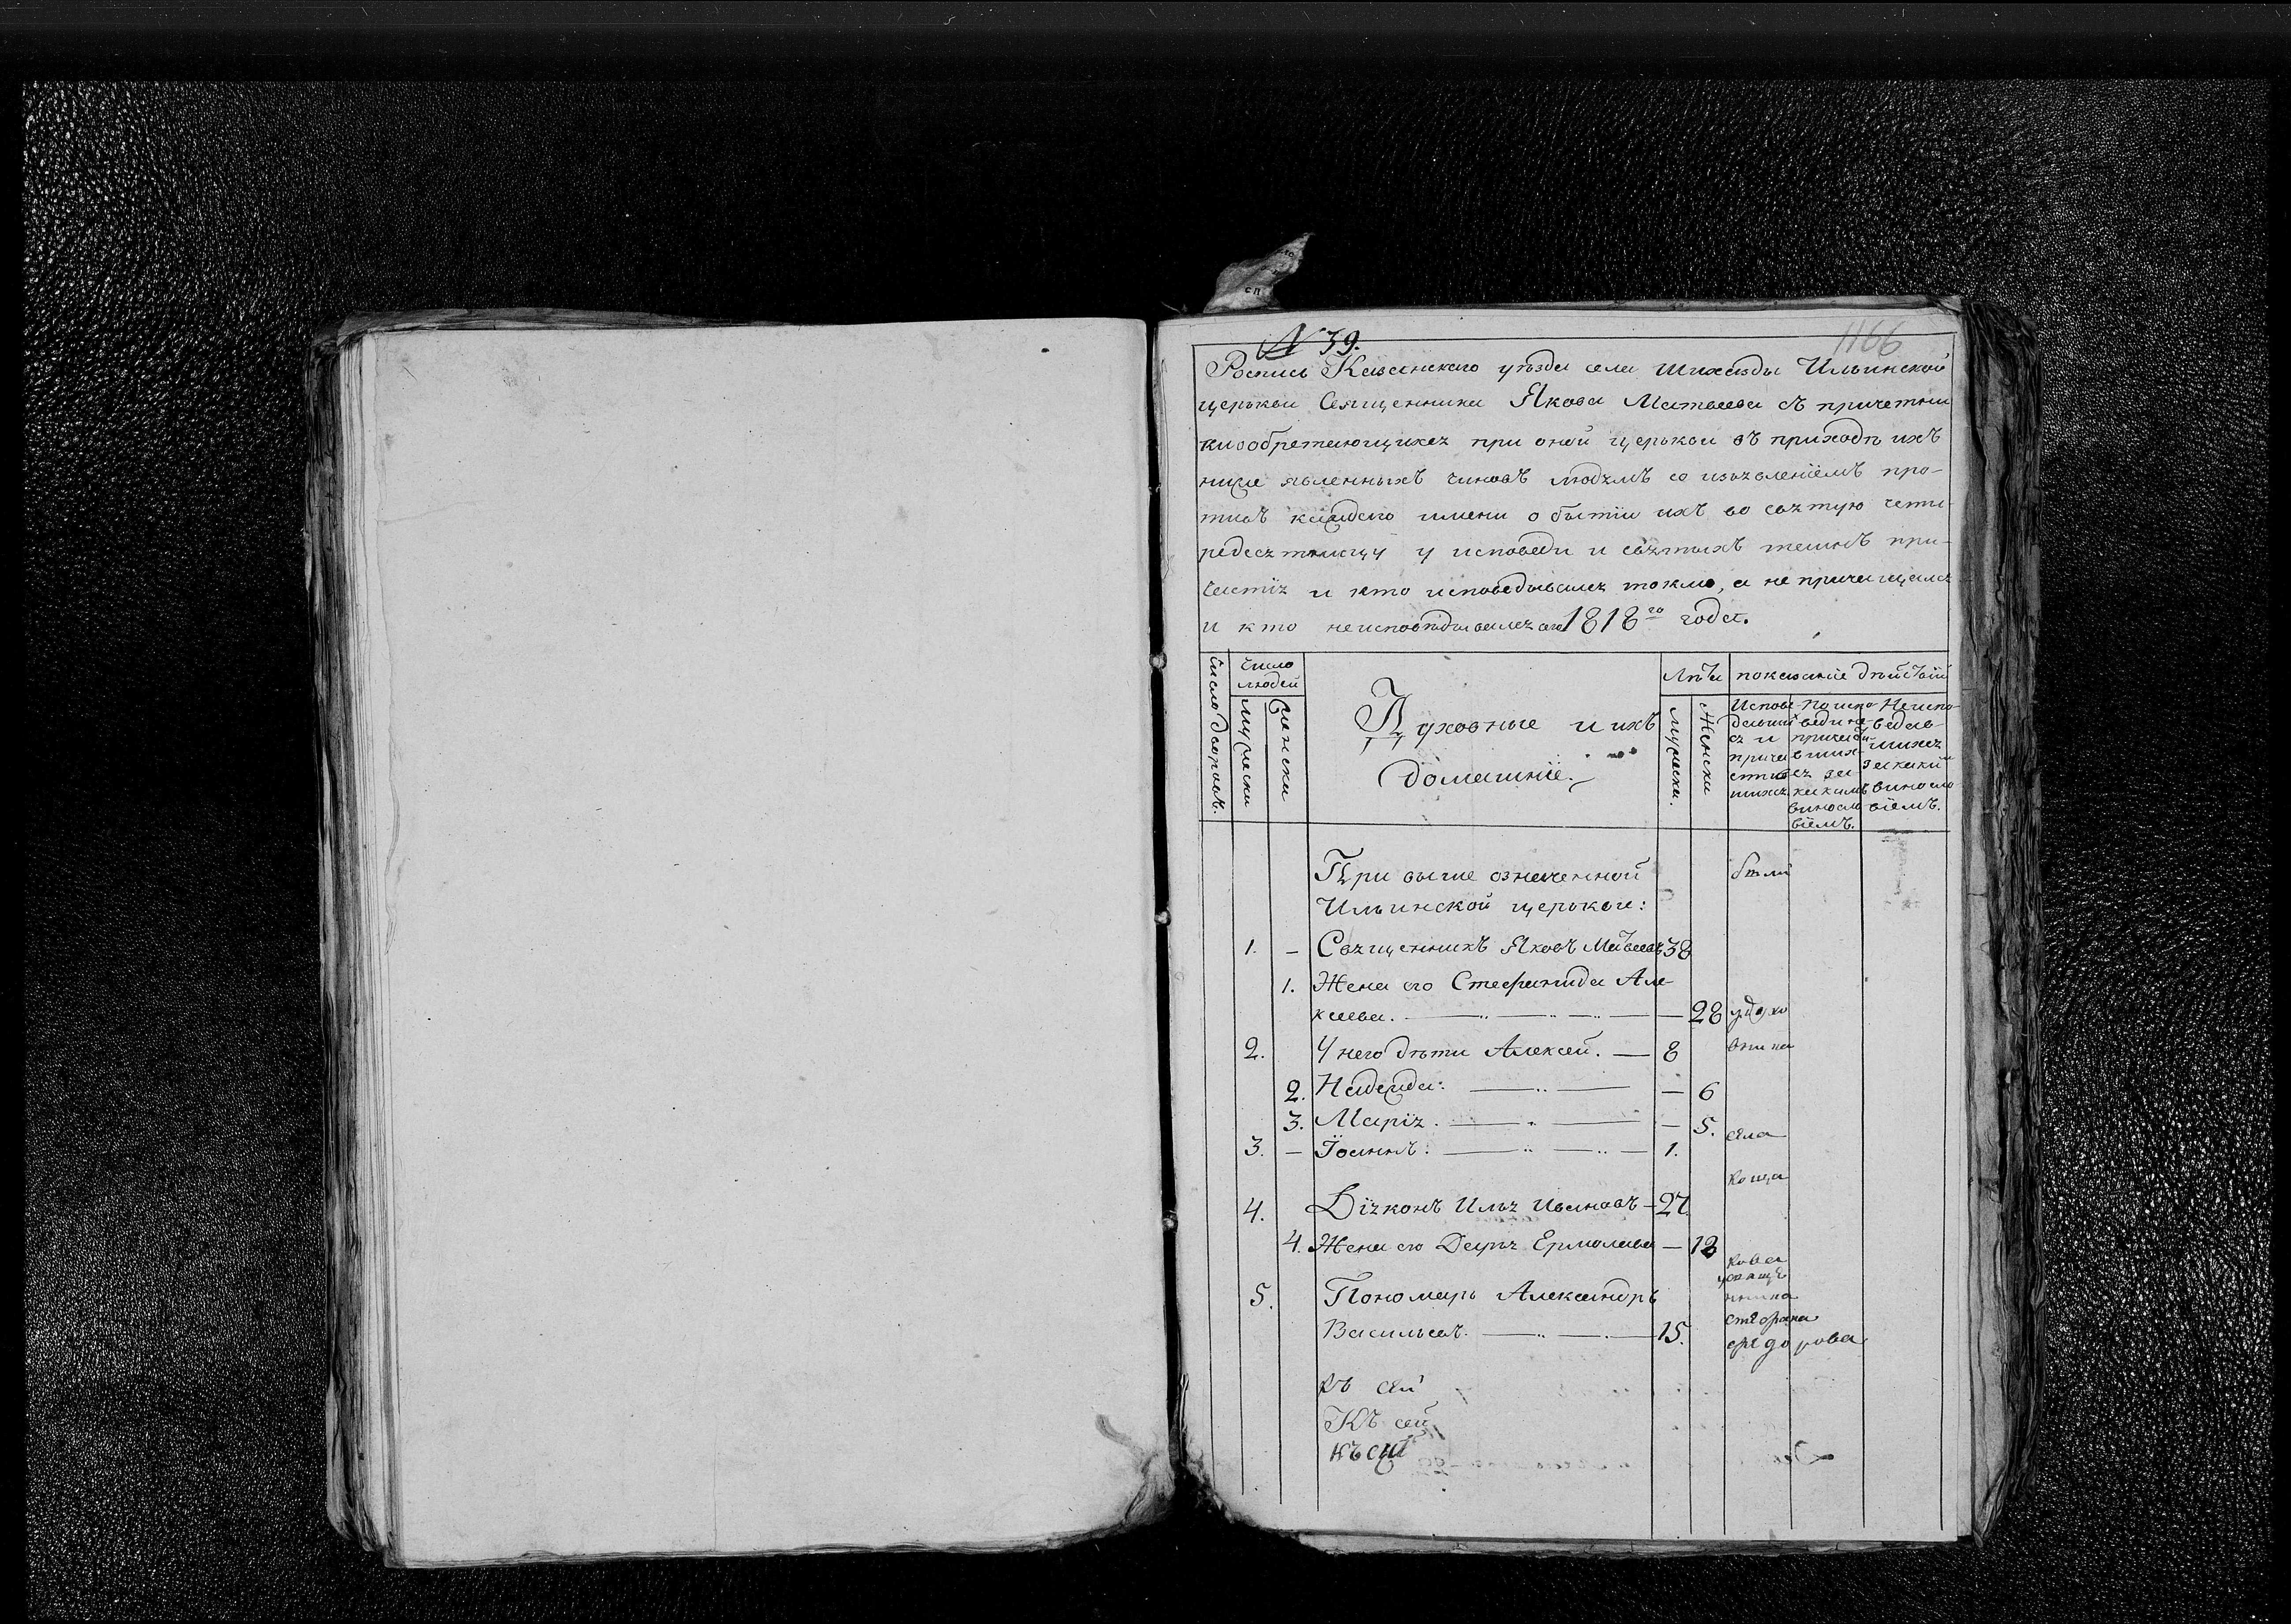 N 39.
1166
Роспись Казанскаго уѣзда села Шихазды Ильинской
церькви Священника Якова Матвеева съ причетни
ки обретающихся при оной церькви въ приходѣ ихъ
ниже явленныхъ чиновъ людямъ со изъявленіемъ про-
тивъ каждаго имени о бытіи ихъ во святую четы-
редесятницу у исповеди и святыхъ таинъ при-
частія и кто исповедывался токмо, а не причащался
и кто неисповѣдывался сего 1818го года.
Число дворовъ.
Число
людей
Мужески
Женски
Духовные и ихъ
домашніе.
Лѣта
Мужеска.
Женски
показаніе дѣйствій
Испове-
давши
ся и
прича
стив
шихся
По испо
веди не
причасти-
вших
ся за
какимъ
виносло
віемъ.
Неиспо
ведав-
шихся
закаким
винос ло
віемъ.
При выше означенной
Ильинской церькви:
были
1. – Священникъ Яковъ Матвеевъ 38
1. Жена его Стефанида Але-
ксеева. — 28
2. У него дѣти Алексей. — 8
2. Надежда: — 6
3. Марія. — 5.
села
3. – Іоаннъ: — 1.
4. Діяконъ Илья Ивановъ – 27
4. Жена его Дарья Ермолаева — 18
5. Пономарь Александръ
Васильевъ. — 15.
нника
стефана
федорова
къ сей
Къ сей
къ сей